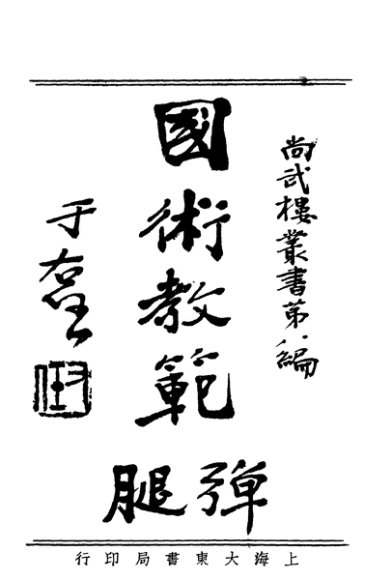 尚武樓叢書第八編
國術教範
彈腿
于右任
上海大東書局印行